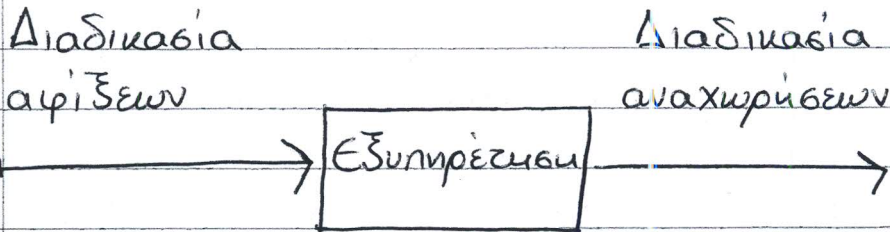 Διαδικασία
αφίξεων
Εξυπηρέτηση
Διαδικασία
αναχωρήσεων